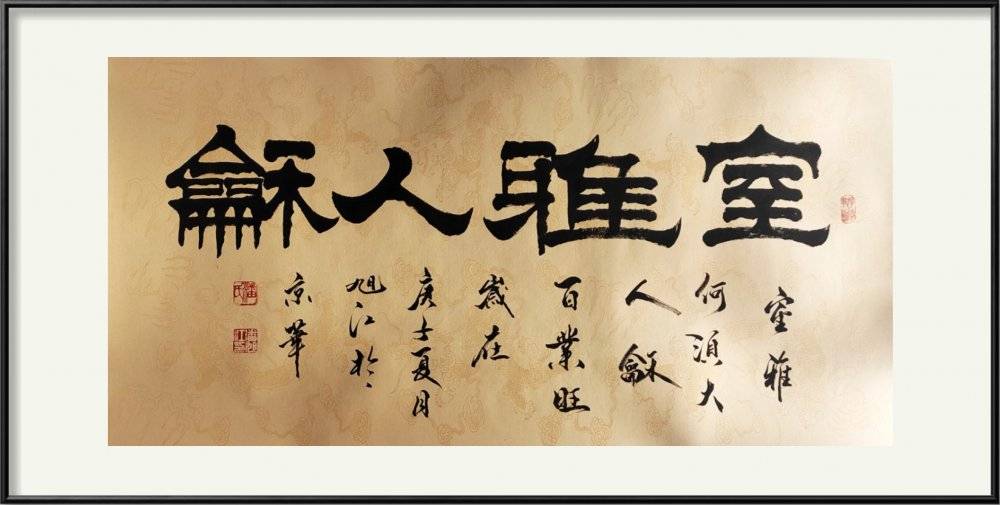 室雅人龢
室雅
何湏大
人龢
百業旺
歲在
庚士夏月
旭江於
京華